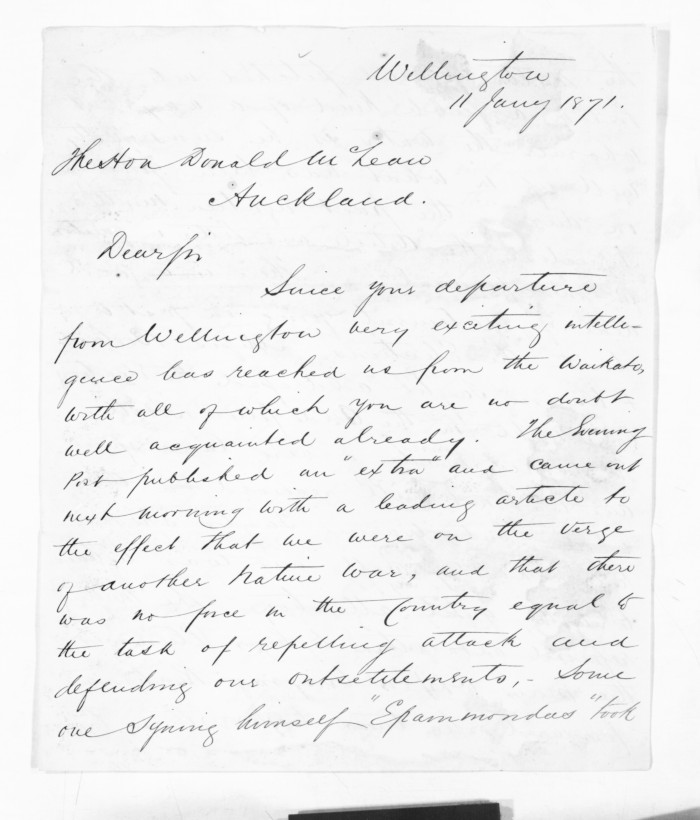 Wellington
11 Jany 1871.
The Hon Donald McLean
Auckland.
Dear Sir
Since your departure
from Wellington very exciting intelli-
gence has reached us from the Waikato,
with all of which you are no doubt
well acquainted already. The Evening
Post published an "extra" and came out
next morning with a leading article to
the effect that we were on the verge
of another Native War, and that there
was no force in the Country equal to
the task of repelling attack and
defending our outsettlements,- Some
one signing himself "Epammondas" took